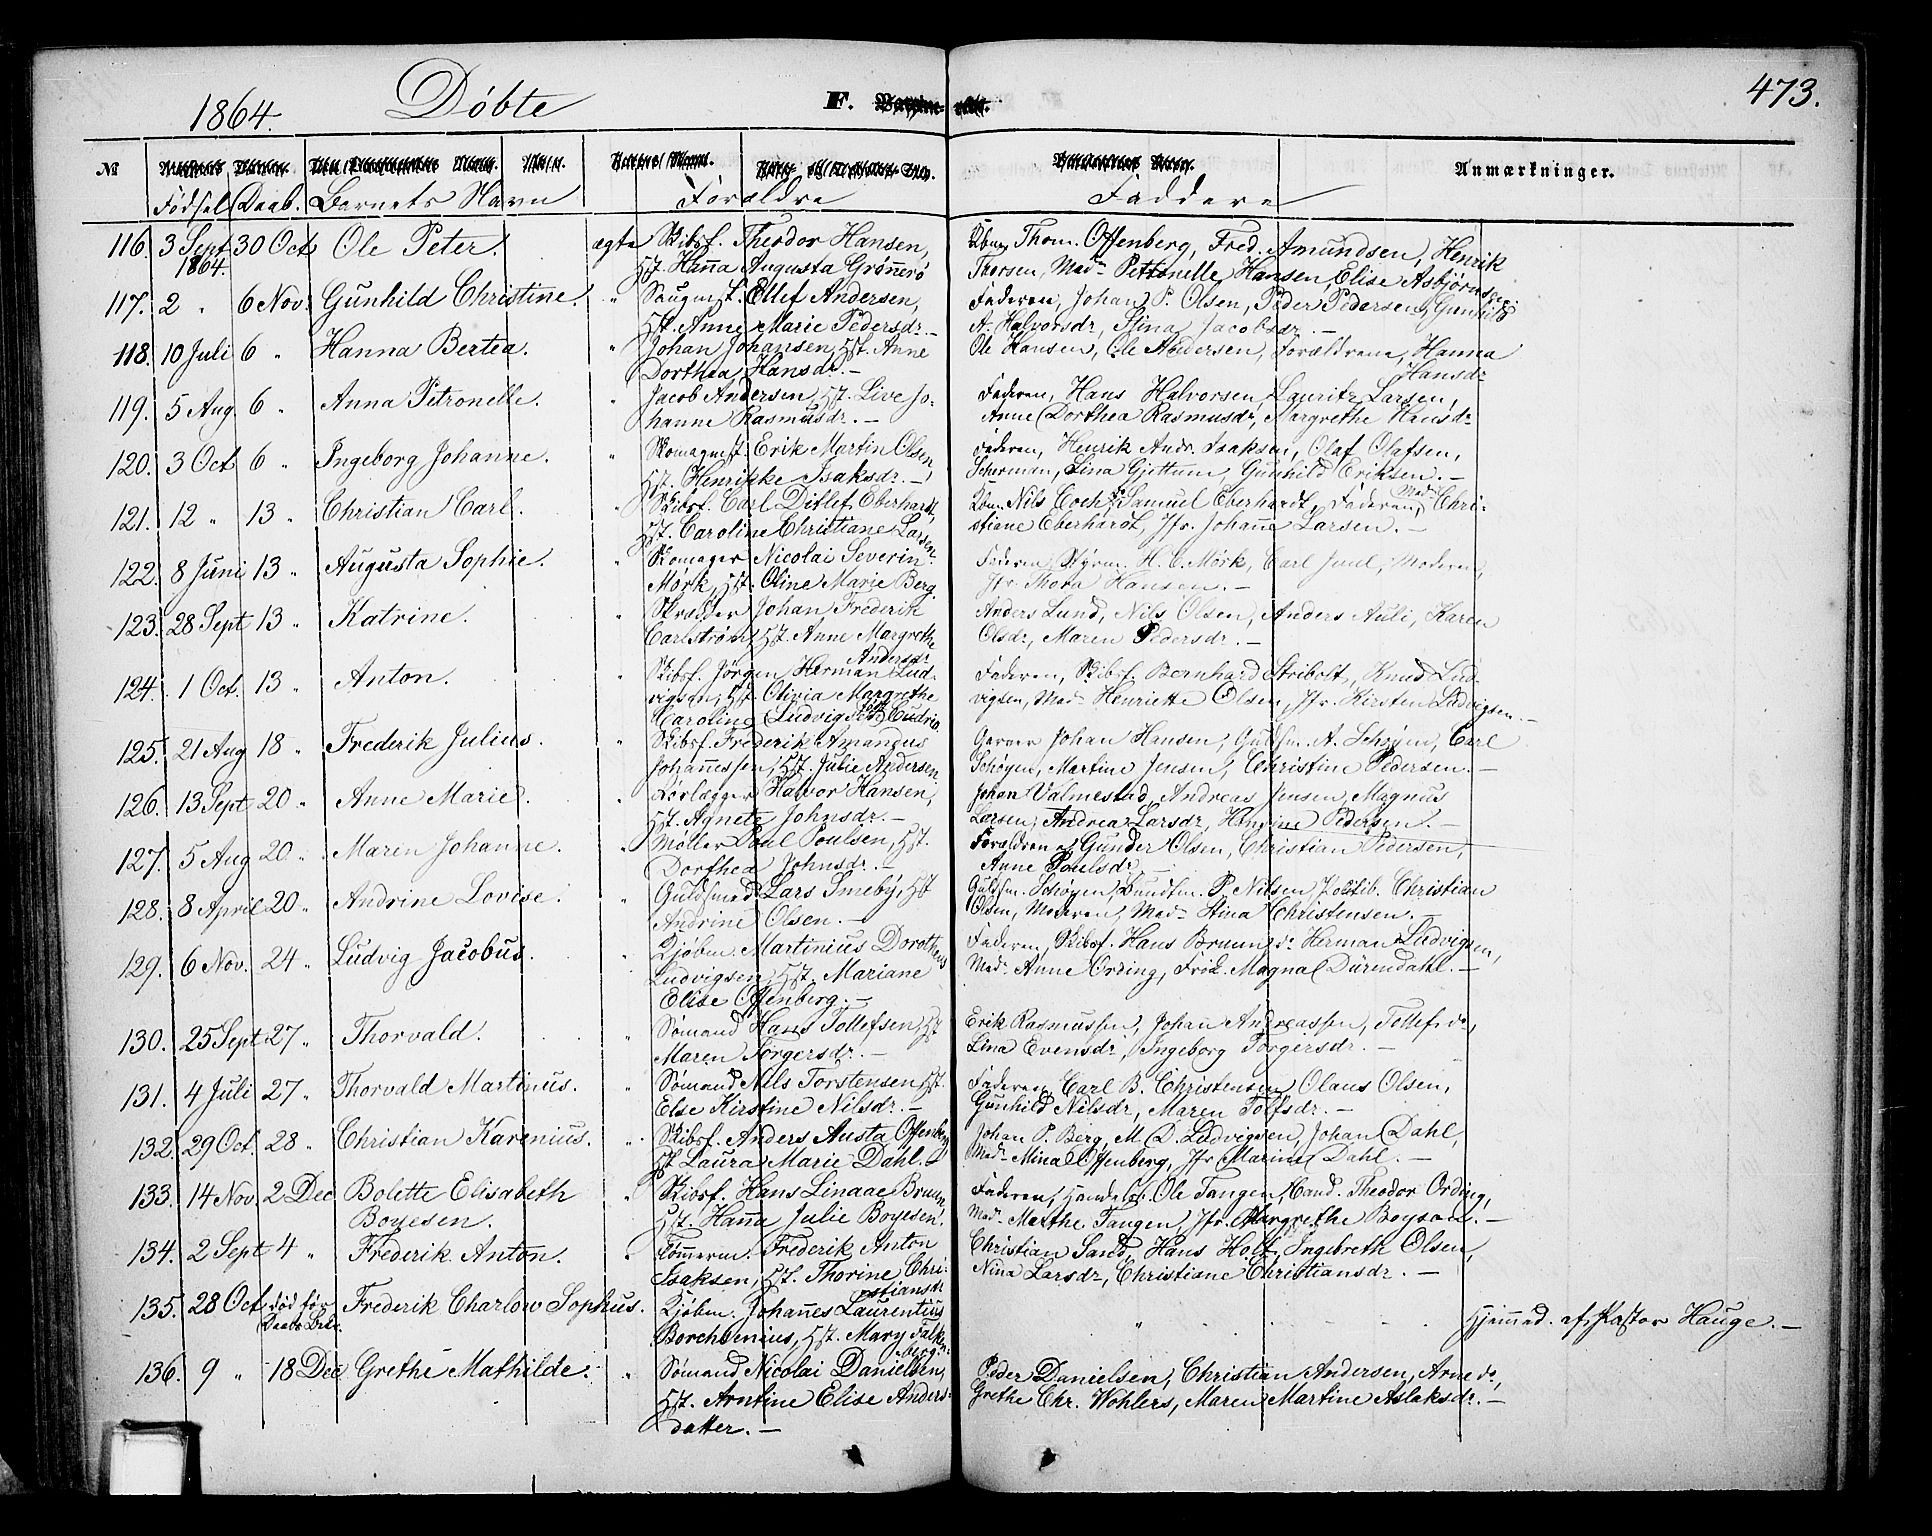 1864. Døbte F. 473.
№ Anmærkninger.
Fødsel Daab. Barnets Navn Forældre Faddere
116. 3 Sept. 1864. 30 Oct Ole Peter. ægte Skibsf. Theodor Hansen, Thom. Offenberg, Fred. Amundsen, Henrik
Hst. Hanna Augusta Grønnerö Thorsen, Mad. Petronelle Hansen, Elise Asbjørnsen
117. 2 " 6 Nov. Gunhild Christine. " Saugmst. Ellef Andersen, Faderen, Johan P. Olsen, Peder Pedersen, Gunhild
Hst. Anne Marie Pedersdr. — A. Halvorsdr, Stina Jacobsdr. —
118. 10 Juli 6 " Hanna Bertea. " Johan Johansen, Hst. Anne Ole Hansen, Ole Andersen, Forældrene, Hanna
Dorthea Hansdr. — Hansdr
119. 5 Aug 6 " Anna Petronelle. " Jacob Andersen, Hst. Live Jo- Faderen, Hans Halvorsen, Lauritz Larsen,
hanne Rasmusdr. — Anne Dorthea Rasmusdr, Margrethe Hansdr
120. 3 Oct 6 " Ingeborg Johanne. " Skomagmst. Erik Martin Olsen, Faderen, Henrik Andr. Isaksen, Olaf Olafsen,
Hst. Henrikke Isaksdr. — Scherman, Lina Gjettum, Gunhild Eriksen. —
121. 12 " 13 " Christian Carl. " Skibsf. Carl Ditlef Eberhardt, Kbm. Nils Coch, do Samuel Eberhardt, Faderen, Mad. Chri-
Hst. Caroline Christiane Larsen. stiane Eberhardt, Jfr. Johanne Larsen. —
122. 8 Juni 13 " Augusta Sophie. " Skomager Nicolai Severin Faderen, Styrm. H. C. Mørk, Carl Juul, Moderen,
Mørk, Hst. Oline Marie Berg. Jfr. Thora Hansen. —
123. 28 Sept 13 " Katrine. " Skrædder Johan Frederik Anders Lund, Nils Olsen, Anders Auli, Karen
Carlstrøm, Hst. Anne Margrethe Andersdr Olsdr, Maren Pedersdr. —
124. 1 Oct. 13 " Anton. " Skibsf. Jörgen Herman Lud- Faderen, Skibsf. Bernhard Stribolt, Knud Lud-
vigsen, Hst. Olivia Margrethe vigsen, Mad. Henriette Olsen, Jfr. Kirsten Ludvigsen. —
Caroline Ludvigsen
125. 21 Aug 18 " Frederik Julius. " Skibsf. Frederik Amandus Garver Johan Hansen, Guldsm. A. Schøyen, Carl
Johannessen, Hst. Julie Andersen Schøyen, Martine Jensen, Christine Pedersen. —
126. 13 Sept 20 " Anne Marie. " Halvor Hansen, Johan Valmestad, Andreas Jensen, Magnus
Hst. Agnete Johnsdr. — Larsen, Andrea Larsdr, Hansine Pedersen. —
127. 5 Aug 20 " Maren Johanne. " Møller Poul Poulsen, Hst. Forældrene, Gunder Olsen, Christian Pedersen,
Dorthea Johnsdr. — Anne Poulsdr. —
128. 8 April 20 " Andrine Lovise. " Guldsmed Lars Smeby, Hst Guldsm. Schøyen, Bundtm. P. Nilsen, Politib. Christian
Andrine Olsen. — Olsen, Moderen, Mad. Stina Christensen. —
129. 6 Nov. 24 " Ludvig Jacobus. " Kjøbm. Martinius Dorotheus Faderen, Skibsf. Hans Bruun, do Herman Ludvigsen,
Ludvigsen, Hst. Mariane Mad. Anne Ording, Frøk. Magna Dürendahl. —
Elise Offenberg. —
130. 25 Sept 27 " Thorvald. " Sømand Hans Tollefsen, Hst Erik Rasmussen, Johan Andreassen, Tollef do,
Maren Torgersdr. — Lina Evensdr, Ingeborg Torgersdr. —
131. 4 Juli 27 " Thorvald Martinus. " Sømand Nils Torstensen, Hst. Faderen, Carl B. Christensen, Olaus Olsen,
Else Kirstine Nilsdr. — Gunhild Nilsdr, Maren Tolfsdr. —
132. 29 Oct. 28 " Christian Karenius. " Skibsf. Anders Austa Offenberg Johan P. Berg, M. D. Ludvigsen, Johan Dahl,
Hst Laura Marie Dahl. Mad. Mina Offenberg, Jfr Marine Dahl. —
133. 14 Nov. 2 Dec Bolette Elisabeth " Skibsf. Hans Linaae Bruun, Faderen, Handelsb. Ole Tangen, Cand. Theodor Ording,
Boyesen. Hst. Hanna Julie Boyesen. Mad. Marthe Tangen, Jfr. Margrethe Boysen. —
134. 2 Sept 4 " Frederik Anton. " Tømmerm. Frederik Anton Christian Sand, Hans Holt, Ingebreth Olsen,
Isaksen, Hst. Thorine Chri- stiansdr Nina Larsdr, Christiane Christiansdr. —
135. 28 Oct. død før Frederik Charlow Sophus. Kjøbm. Johannes Laurentius " Hjemmed. af Pastor Hauge. —
Borchsenius, Hst. Mary Falken- berg.
136. 9 " 18 Dec Grethe Mathilde. " Sømand Nicolai Danielsen, Peder Danielsen, Christian Andersen, Arne do,
Hst. Arntine Elise Anders- Grethe Chr. Wohlers, Maren Martine Aslaksdr. —
datter. —